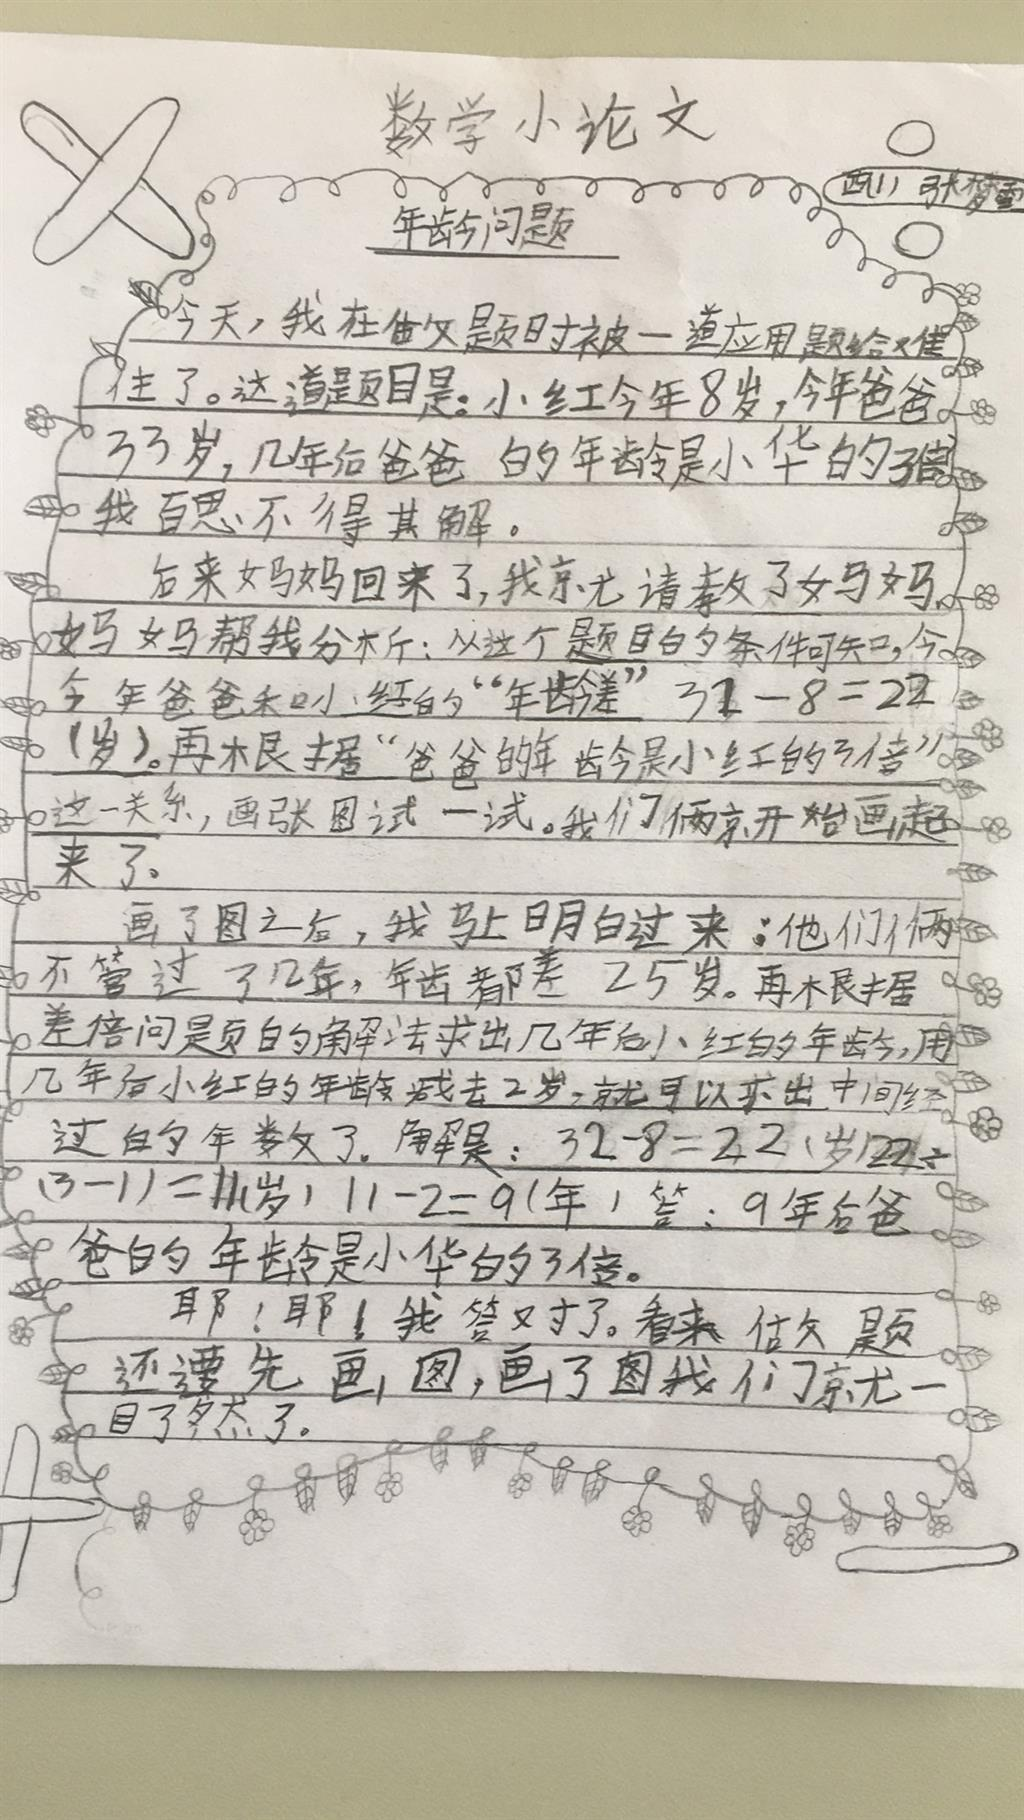 数学小论文
四(1) 张梦雪
年龄问题
今天,我在做题时被一道应用题给难
住了。这道题目是:小红今年8岁,今年爸爸
33岁,几年后爸爸 的年龄是小华的3倍
我百思不得其解。
后来妈妈回来了,我就请教了妈妈。
妈妈帮我分析:从这个题目的条件可知,今
今年爸爸和小红的“年龄差”32-8=22
(岁)。再根据“爸爸的年龄今是小红的3倍”
这一关系,画张图试一试。我们俩就开始画起
来了。
画了图之后,我马上明白过来:他们俩
不管过了几年,年齿都差 25岁。再根据
差倍问题的解法求出几年后小红的年龄,用
几年后小红的年龄减去2岁,就可以求出中间经
过的年数了。解是:32-8=22(岁)22÷
(3-1)=11(岁) 11-2=9(年)答:9年后爸
爸的年龄是小华的3倍。
耶!耶!我答对了。看来 做题
还要先画图,画了图我们就一
目了然了。